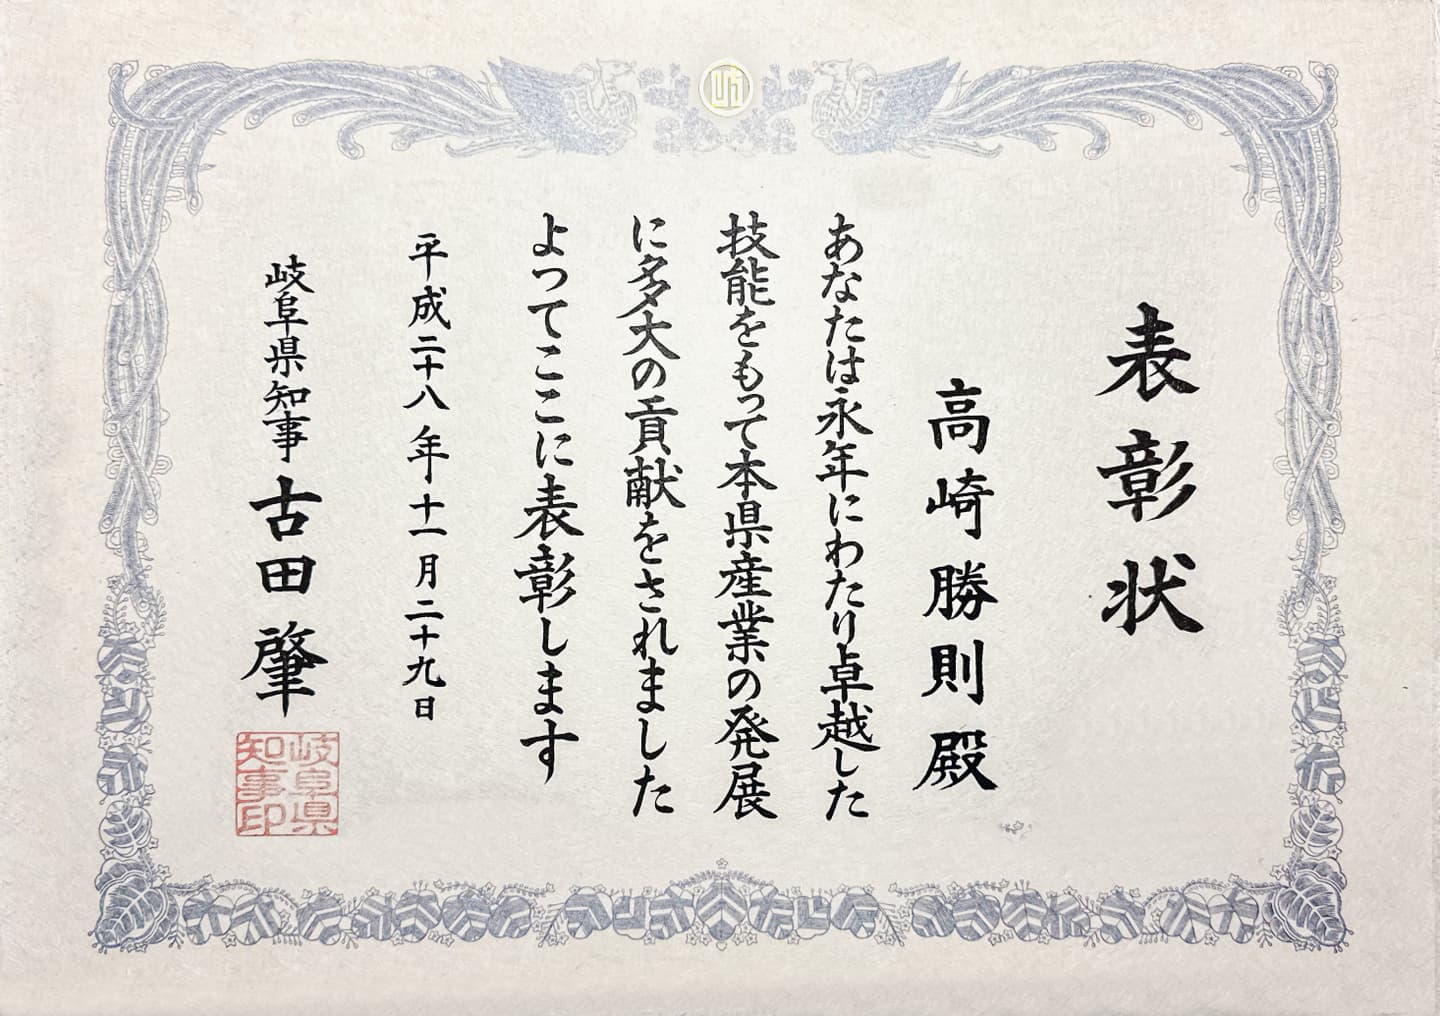 岐
表彰状
高崎勝則殿
あなたは永年にわたり卓越した
技能をもって本県産業の発展
に多大の貢献をされました
よってここに表彰します
平成二十八年十一月二十九日
岐阜県知事 古田肇
岐阜県
知事印